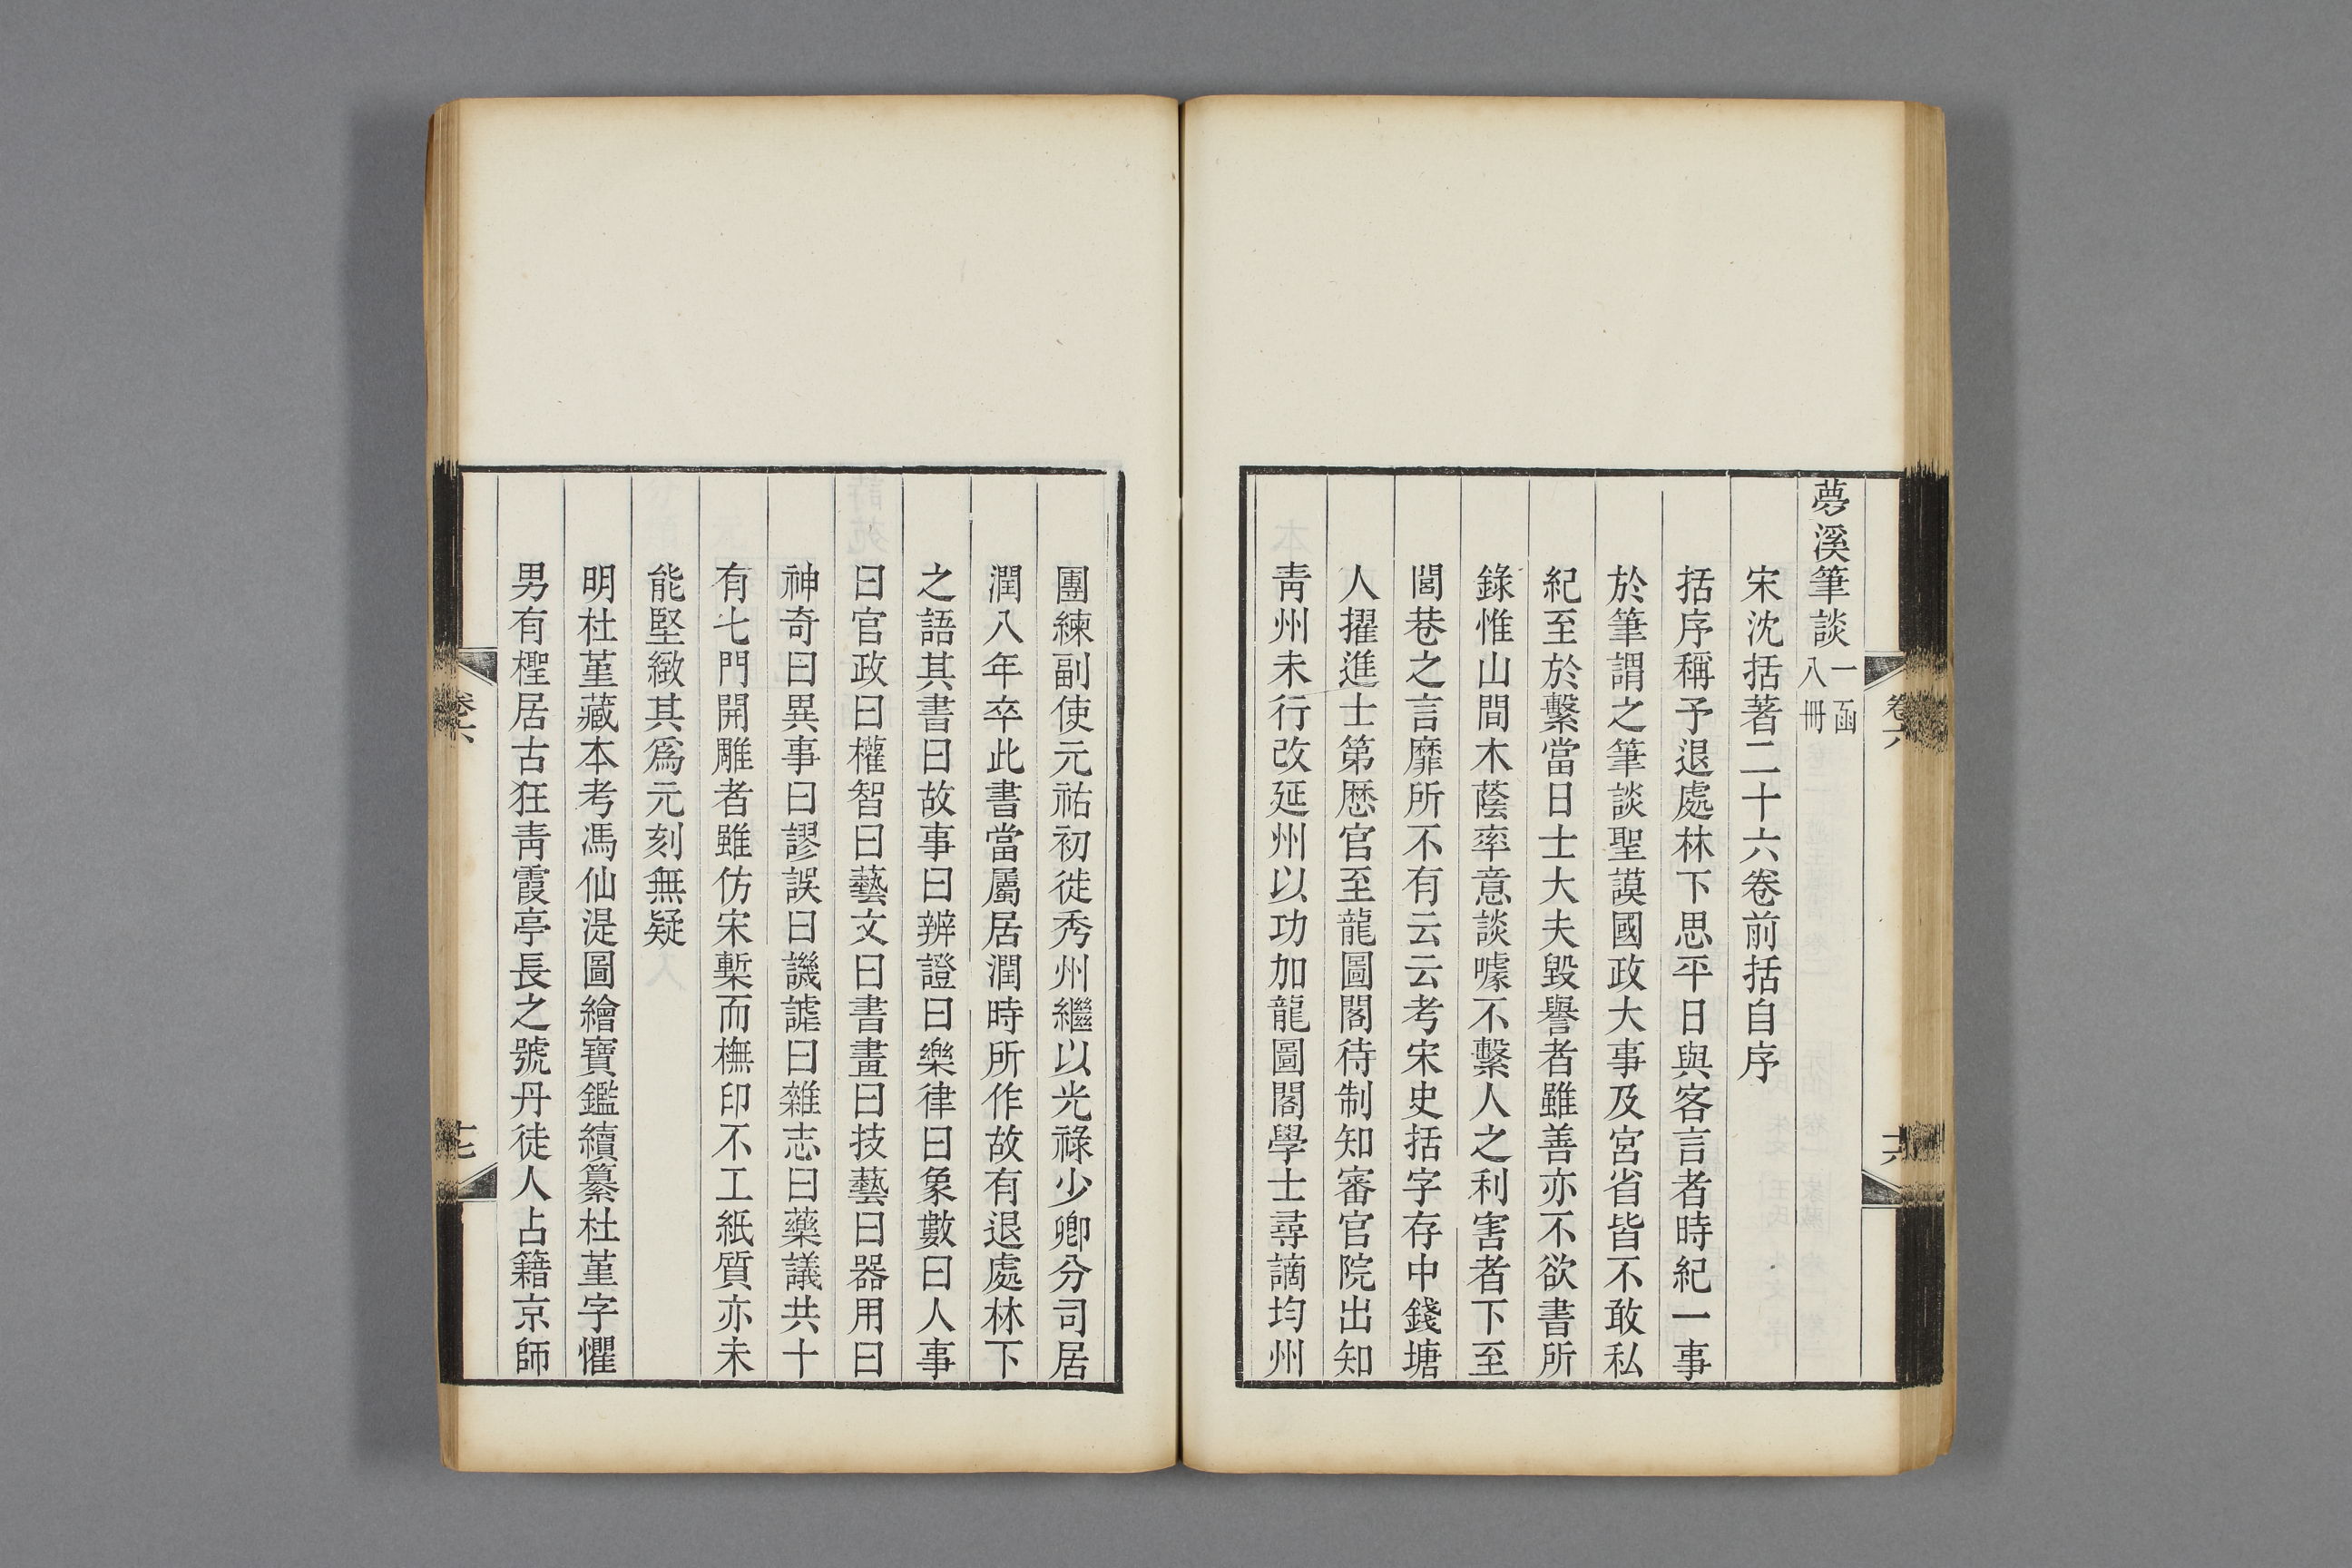 夢溪筆談一函八冊
宋沈括著二十六卷前括自序
括序稱予退處林下思平日與客言者時紀一事
於筆謂之筆談聖謨國政大事及宮省皆不敢私
紀至於繫當日士大夫毀譽者雖善亦不欲書所
錄惟山間木蔭率意談噱不繫人之利害者下至
閭巷之言靡所不有云云考宋史括字存中錢塘
人擢進士第歷官至龍圖閣待制知審官院出知
青州未行改延州以功加龍圖閣學士尋謫均州
卷六
十六
團練副使元祐初徙秀州繼以光祿少卿分司居
潤八年卒此書當屬居潤時所作故有退處林下
之語其書曰故事曰辨證曰樂律曰象數曰人事
曰官政曰權智曰藝文曰書畫曰技藝曰器用曰
神奇曰異事曰謬誤曰譏謔曰雜志曰藥議共十
有七門開雕者雖仿宋槧而橅印不工紙質亦未
能堅緻其爲元刻無疑
明杜堇藏本考馮仙湜圖繪寶鑑續纂杜堇字懼
男有檉居古狂青霞亭長之號丹徒人占籍京師
卷六
十七